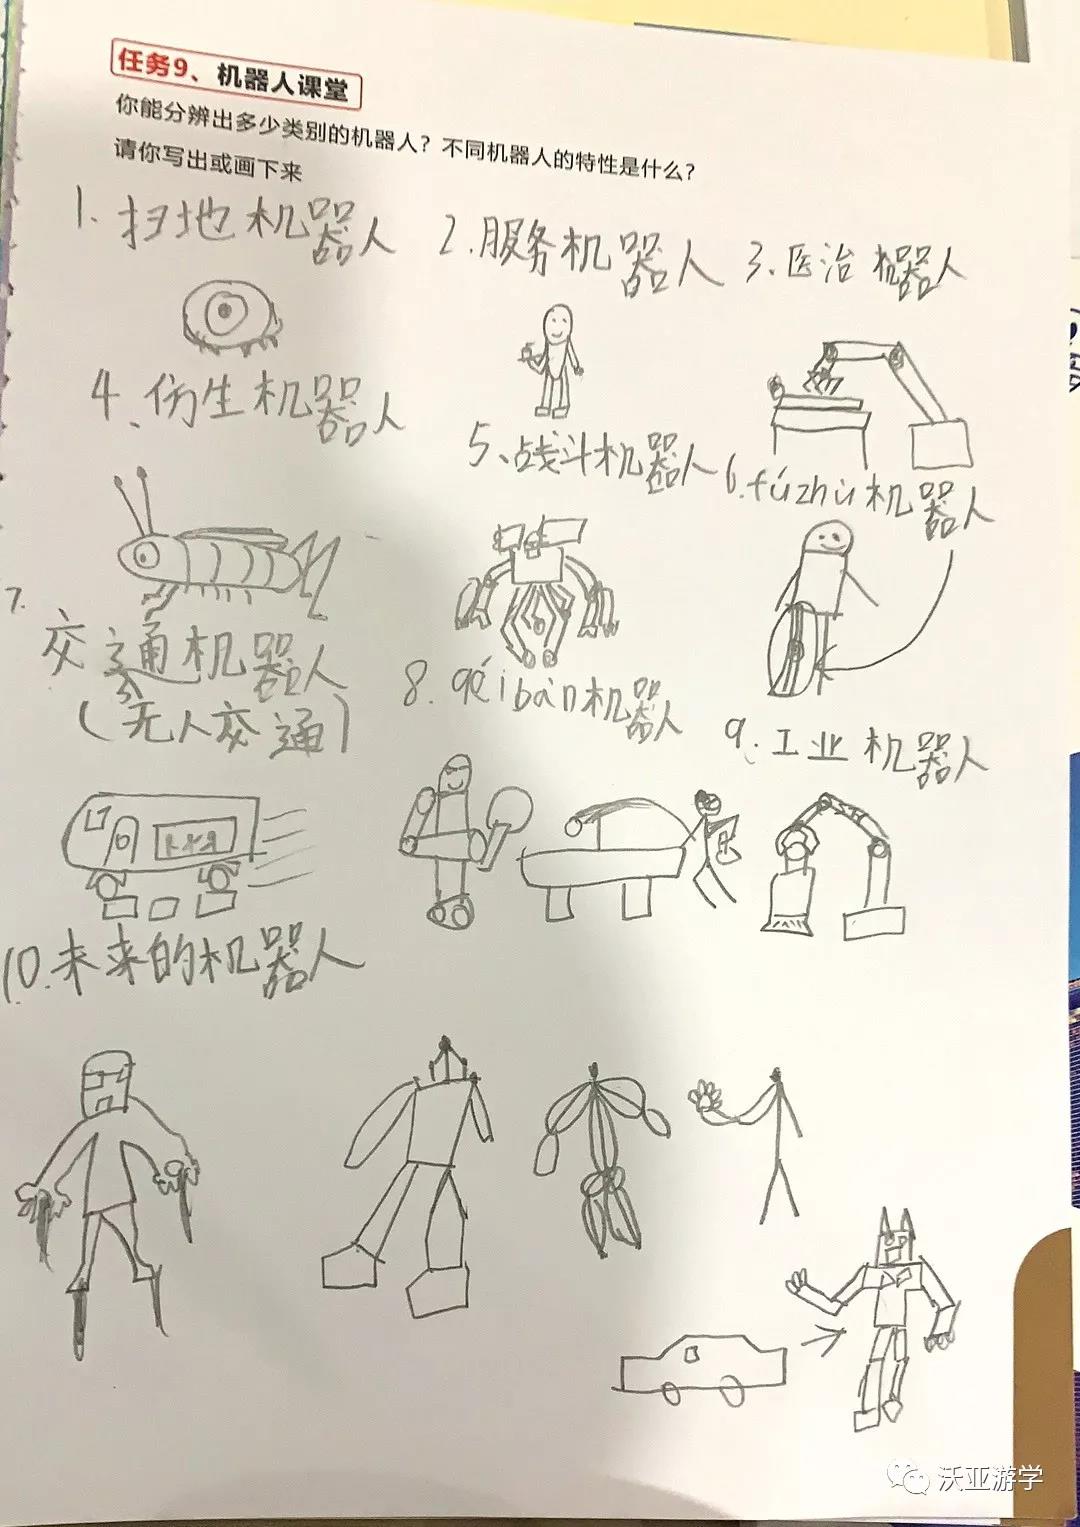 任务9、机器人课堂
你能分辨出多少类别的机器人？不同机器人的特性是什么？
请你写出或画下来
1.扫地机器人
2.服务机器人
3.医治机器人
4、仿生机器人
5、战斗机器人
6.fúzhù机器人
7.
交通机器人
（无人交通）
8.péibàn机器人
9.工业机器人
10.未来的机器人
沃亚游学